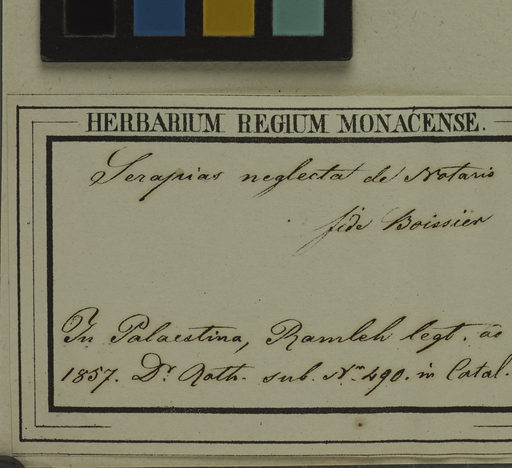 HERBARIUM REGIUM MONACENSE.
Serapias neglecta de Notaris
fide Boissier
In Palaestina, Ramleh legt. ao
1857. Dr Roth. sub. No 490. in Catal.